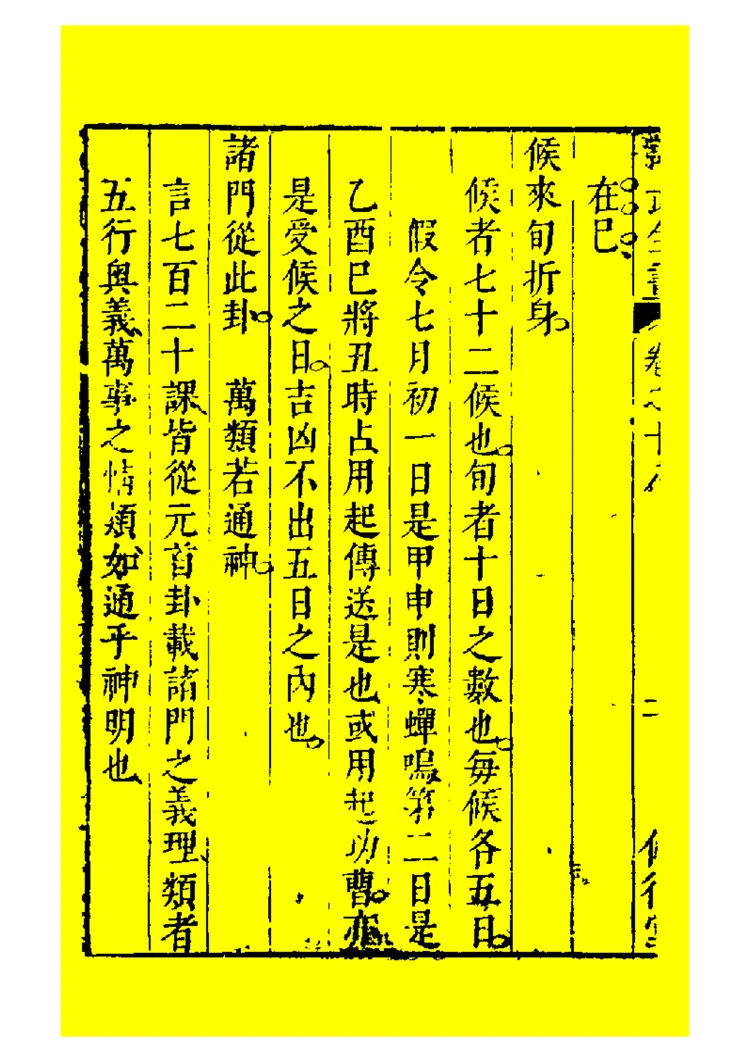 卷之十八 二
在巳
候來旬折身
候者七十二候也旬者十日之數也每候各五日
假令七月初一日是甲申則寒蟬鳴第二日是
乙酉巳將丑時占用起傳送是也或用起功曹亦
是受候之日吉凶不出五日之內也
諸門從此卦 萬類若通神
言七百二十課皆從元首卦載諸門之義理類者
五行奧義萬事之情類如通乎神明也